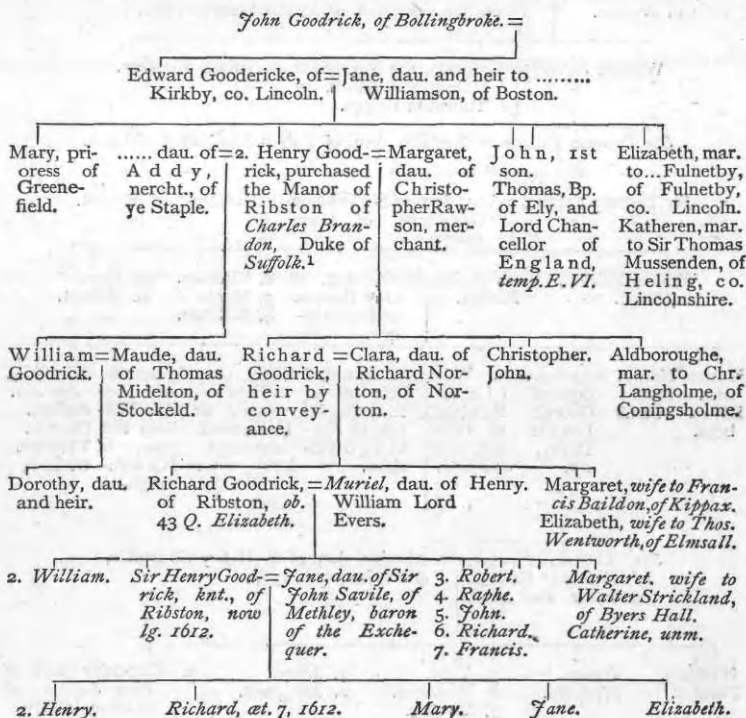 John Goodrick, of Bollingbroke.=
Edward Goodericke, of=
Kirkby, co. Lincoln.
Jane, dau. and heir to .........
Williamson, of Boston.
Mary, pri-
oress of
Greene-
field.
...... dau. of=
Addy,
nercht., of
ye Staple.
2. Henry Good-=
rick, purchased
the Manor of
Ribston of
Charles Bran-
don, Duke of
Suffolk.¹
Margaret,
dau. of
Christo-
pher Raw-
son, mer-
chant.
John, 1st
son.
Thomas, Bp.
of Ely, and
Lord Chan-
cellor of
England,
temp. E. VI.
Elizabeth, mar.
to...Fulnetby,
of Fulnetby,
co. Lincoln.
Katheren, mar.
to Sir Thomas
Mussenden, of
Heling, co.
Lincolnshire.
William=
Goodrick.
Maude, dau.
of Thomas
Midelton, of
Stockeld.
Richard=
Goodrick,
heir by
convey-
ance.
Clara, dau. of
Richard Nor-
ton, of Nor-
ton.
Christopher.
John.
Aldboroughe,
mar. to Chr.
Langholme, of
Coningsholme.
Dorothy, dau.
and heir.
Richard Goodrick,=
of Ribston, ob.
43 Q. Elizabeth.
Muriel, dau. of
William Lord
Evers.
Henry.
Margaret, wife to Fran-
cis Baildon, of Kippax.
Elizabeth, wife to Thos.
Wentworth, of Elmsall.
2. William.
Sir Henry Good-=
rick, knt., of
Ribston, now
lg. 1612.
Jane, dau. of Sir
John Savile, of
Methley, baron
of the Exche-
quer.
3. Robert.
4. Raphe.
5. John.
6. Richard.
7. Francis.
Margaret. wife to
Walter Strickland,
of Byers Hall.
Catherine, unm.
2. Henry.
Richard, æt. 7, 1612.
Mary.
Jane.
Elizabeth.